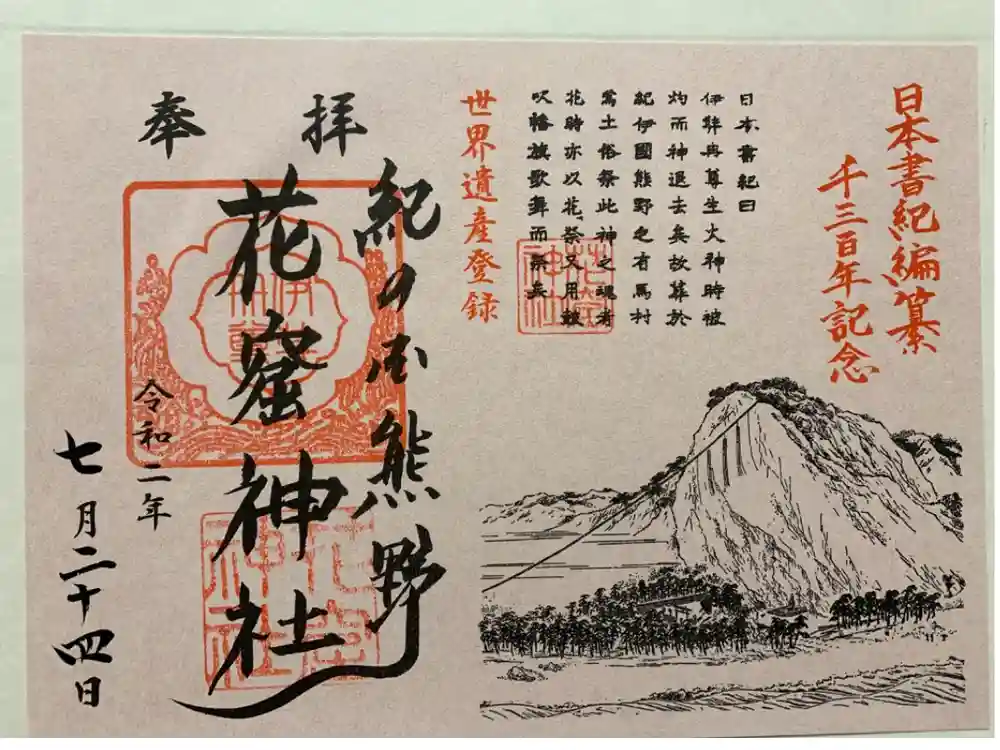 日本書紀編纂
千三百年記念
日本書紀曰
伊弉冉尊生火神時被
灼而神退去矣故葬於
紀伊國熊野之有馬村
焉土俗祭此神之魂者
花時亦以花祭又用鼓
吹幡旗歌舞而祭矣
世界遺産登録
花窟
神社
奉拝
紀の国熊野
花窟神社
伊弉
冉尊
花窟
神社
令和二年
七月二十四日